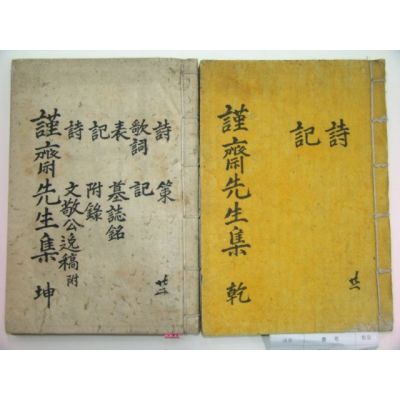 詩
記
謹齋先生集 乾
詩 策
歌詞 記
表 墓誌銘
記 附錄
詩 文敬公逸稿附
謹齋先生集 坤